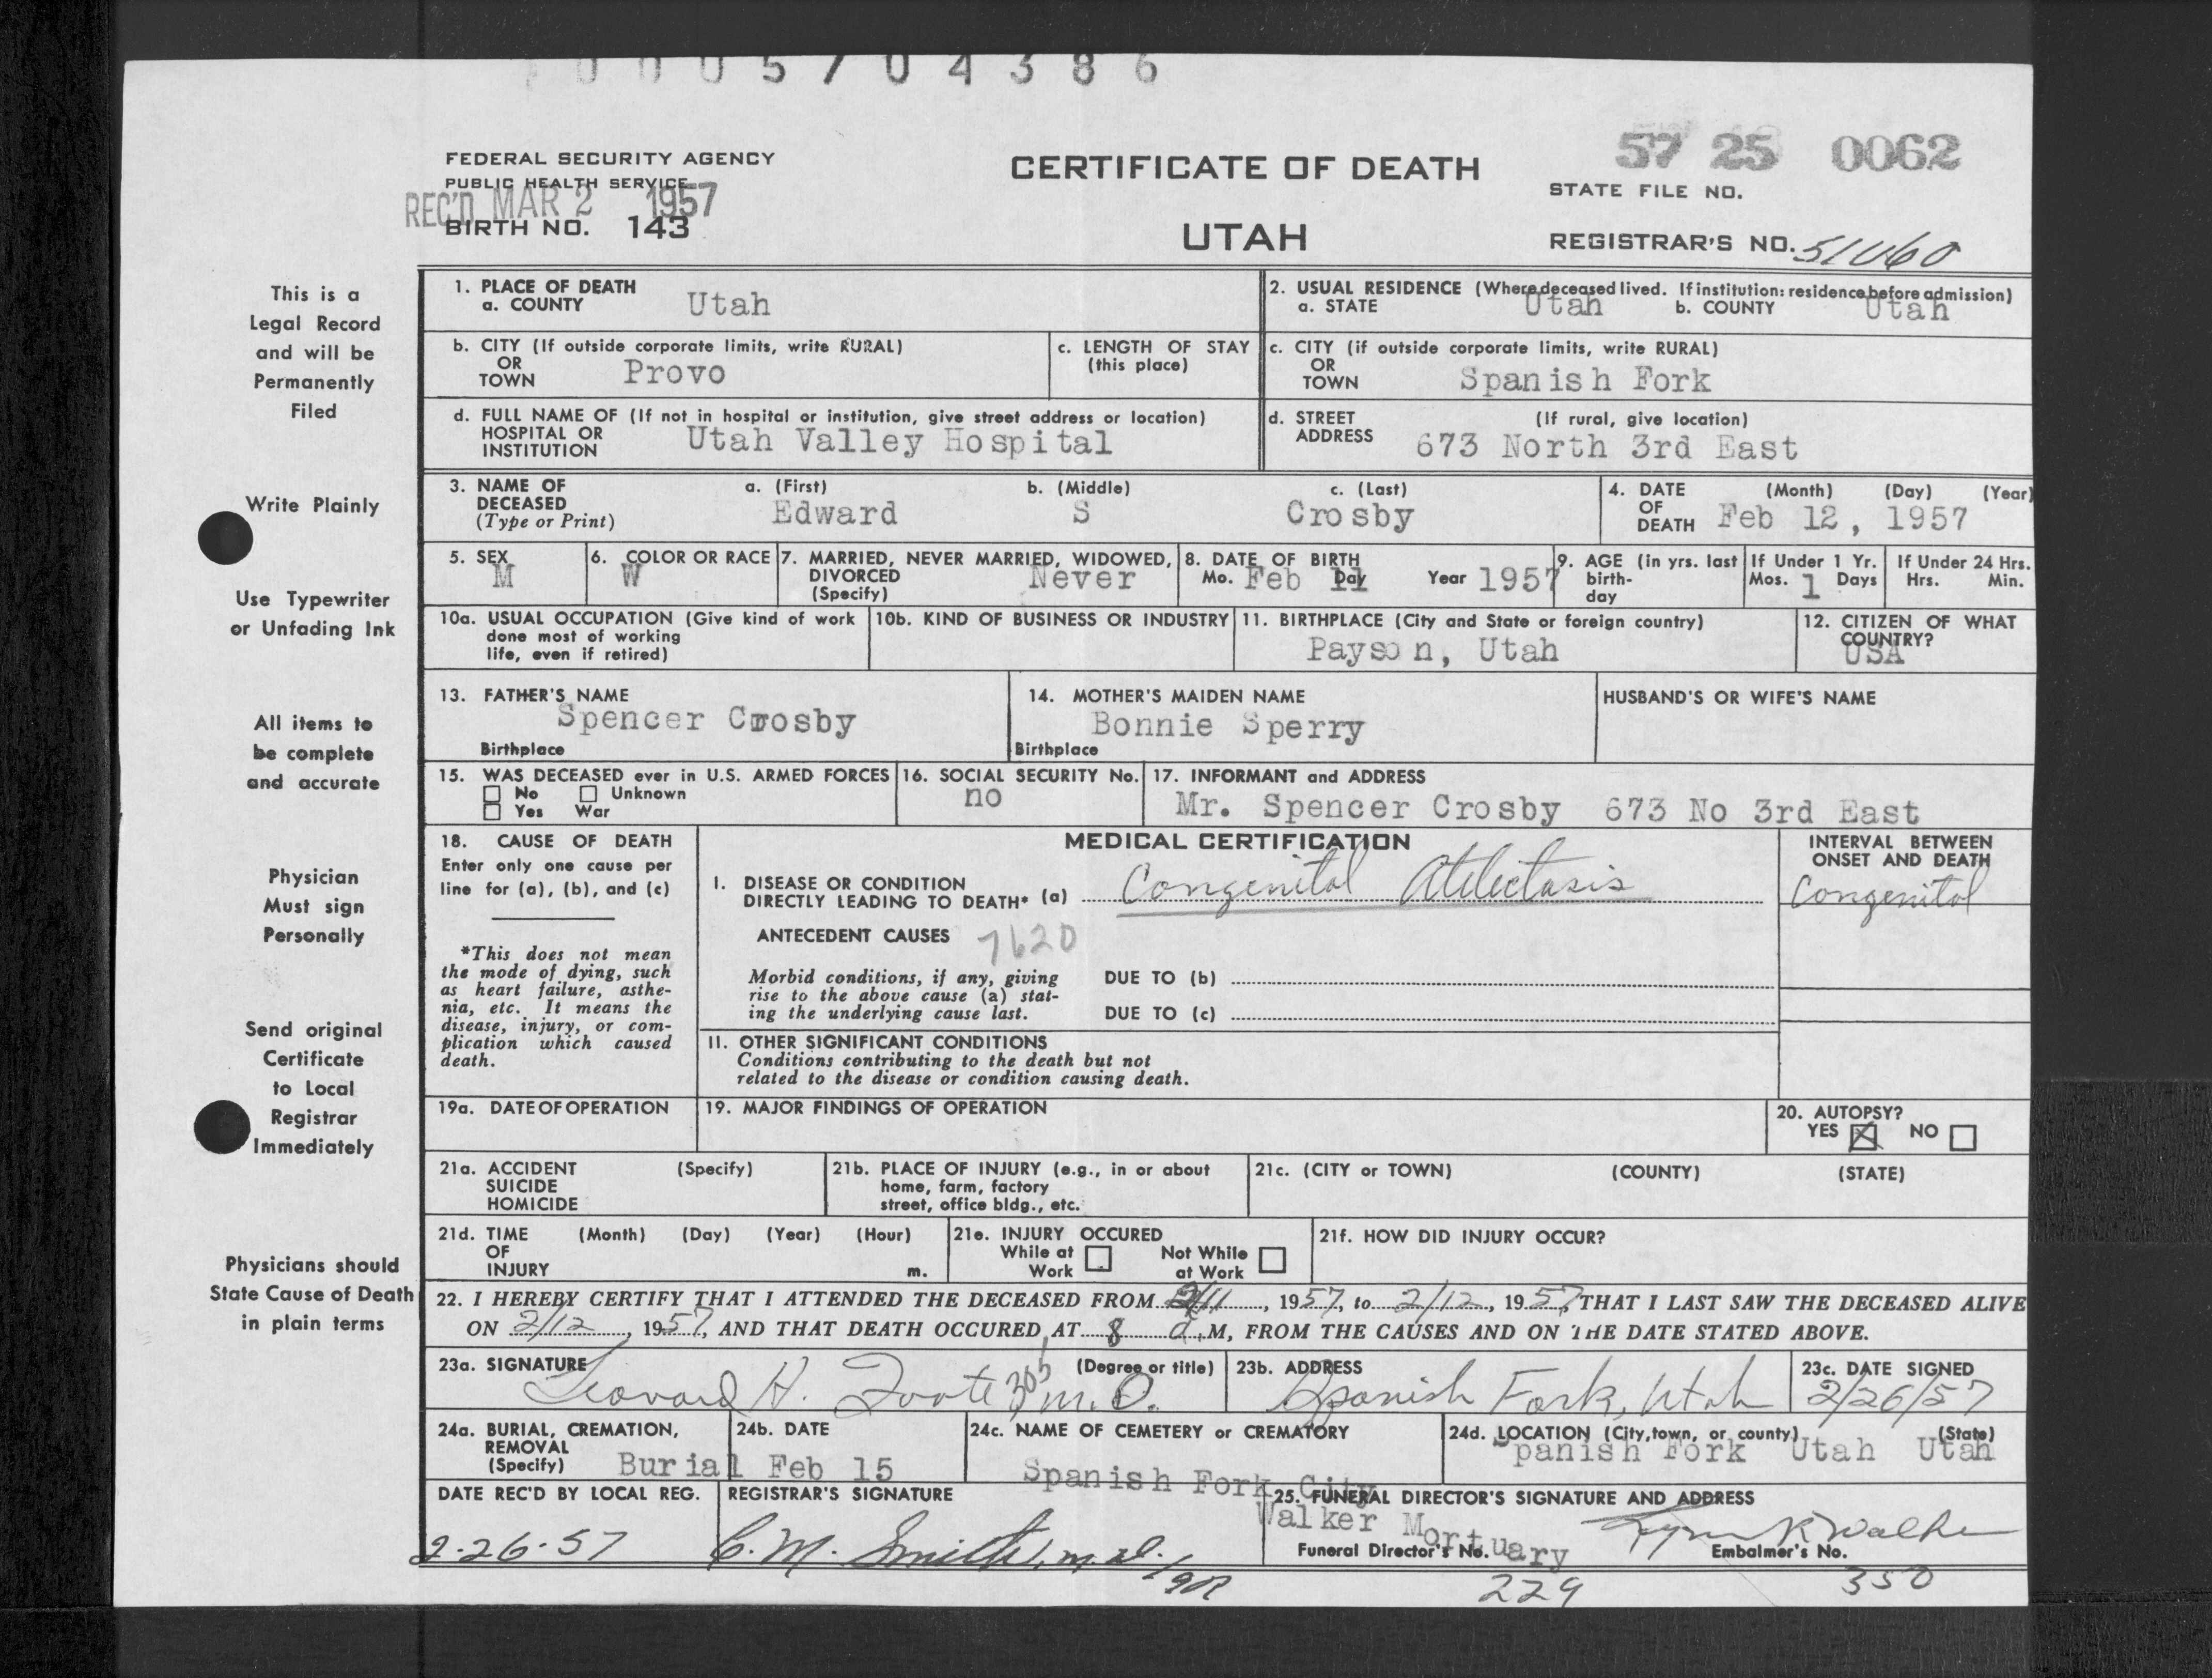 0005704386
57 25 0062
FEDERAL SECURITY AGENCY
PUBLIC HEALTH SERVICE
REC'D MAR 2 1957
BIRTH NO. 143
CERTIFICATE OF DEATH
UTAH
STATE FILE NO.
REGISTRAR'S NO.
This is a
Legal Record
and will be
Permanently
Filed
Write Plainly
Use Typewriter
or Unfading Ink
All items to
be complete
and accurate
Physician
Must sign
Personally
Send original
Certificate
to Local
Registrar
Immediately
Physicians should
State Cause of Death
in plain terms
1. PLACE OF DEATH
a. COUNTY Utah
2. USUAL RESIDENCE (Where deceased lived. If institution: residence before admission)
a. STATE Utah b. COUNTY Utah
b. CITY (If outside corporate limits, write RURAL)
OR
TOWN Provo
c. LENGTH OF STAY
(this place)
c. CITY (if outside corporate limits, write RURAL)
OR
TOWN Spanish Fork
d. FULL NAME OF (If not in hospital or institution, give street address or location)
HOSPITAL OR
INSTITUTION Utah Valley Hospital
d. STREET (If rural, give location)
ADDRESS 673 North 3rd East
3. NAME OF
DECEASED
(Type or Print)
a. (First) b. (Middle) c. (Last)
Edward S Crosby
4. DATE (Month) (Day) (Year)
OF
DEATH Feb 12, 1957
5. SEX
M
6. COLOR OR RACE
W
7. MARRIED, NEVER MARRIED, WIDOWED,
DIVORCED Never
(Specify)
8. DATE OF BIRTH
Mo. Feb Day 11 Year 1957
9. AGE (in yrs. last
birth-
day
If Under 1 Yr.
Mos. 1 Days
If Under 24 Hrs.
Hrs. Min.
10a. USUAL OCCUPATION (Give kind of work
done most of working
life, even if retired)
10b. KIND OF BUSINESS OR INDUSTRY
11. BIRTHPLACE (City and State or foreign country)
Payson, Utah
12. CITIZEN OF WHAT
COUNTRY?
USA
13. FATHER'S NAME
Spencer Crosby
Birthplace
14. MOTHER'S MAIDEN NAME
Bonnie Sperry
Birthplace
HUSBAND'S OR WIFE'S NAME
15. WAS DECEASED ever in U.S. ARMED FORCES
No Unknown
Yes War
16. SOCIAL SECURITY No.
no
17. INFORMANT and ADDRESS
Mr. Spencer Crosby 673 No 3rd East
18. CAUSE OF DEATH
Enter only one cause per
line for (a), (b), and (c)
*This does not mean
the mode of dying, such
as heart failure, asthe-
nia, etc. It means the
disease, injury, or com-
plication which caused
death.
MEDICAL CERTIFICATION
I. DISEASE OR CONDITION
DIRECTLY LEADING TO DEATH* (a) Congenital Atelectasis
ANTECEDENT CAUSES 7620
Morbid conditions, if any, giving
rise to the above cause (a) stat-
ing the underlying cause last.
DUE TO (b)
DUE TO (c)
II. OTHER SIGNIFICANT CONDITIONS
Conditions contributing to the death but not
related to the disease or condition causing death.
INTERVAL BETWEEN
ONSET AND DEATH
Congenital
19a. DATE OF OPERATION
19. MAJOR FINDINGS OF OPERATION
20. AUTOPSY?
YES NO
21a. ACCIDENT (Specify)
SUICIDE
HOMICIDE
21b. PLACE OF INJURY (e.g., in or about
home, farm, factory
street, office bldg., etc.
21c. (CITY or TOWN) (COUNTY) (STATE)
21d. TIME (Month) (Day) (Year) (Hour)
OF
INJURY m.
21e. INJURY OCCURED
While at Work
Not While at Work
21f. HOW DID INJURY OCCUR?
22. I HEREBY CERTIFY THAT I ATTENDED THE DECEASED FROM 2/11, 1957, to 2/12, 1957, THAT I LAST SAW THE DECEASED ALIVE
ON 2/12, 1957, AND THAT DEATH OCCURED AT 8 a.M, FROM THE CAUSES AND ON THE DATE STATED ABOVE.
23a. SIGNATURE (Degree or title)
Leonard H. Foote 305 M.D.
23b. ADDRESS
Spanish Fork, Utah
23c. DATE SIGNED
2/26/57
24a. BURIAL, CREMATION,
REMOVAL
(Specify) Burial
24b. DATE
Feb 15
24c. NAME OF CEMETERY or CREMATORY
Spanish Fork City
24d. LOCATION (City, town, or county) (State)
Spanish Fork Utah Utah
DATE REC'D BY LOCAL REG.
2-26-57
REGISTRAR'S SIGNATURE
C. M. Smith, M.D.
25. FUNERAL DIRECTOR'S SIGNATURE AND ADDRESS
Walker Mortuary
Funeral Director's No. 229
Embalmer's No. 350